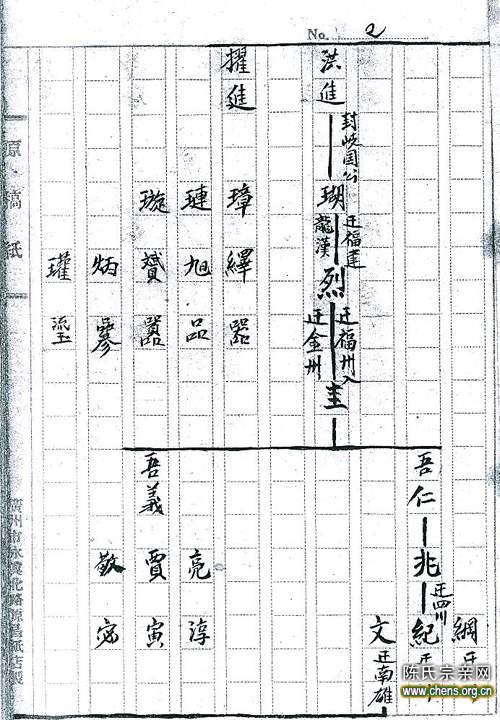 No. 2
洪進
封岐国公
瑚
迁福建
龍漢
烈
迁福州入
迁金州
圭
擢進
璋
繹
器
璉
旭
品
璇
贇
嚚
炳
璆
瓘
瑬
吾仁
兆
迁四川
紀
綱
文
迁南雄
吾義
亮
淳
賈
寅
敬
宓
原稿紙
廣州市永漢北路源昌紙店製
陈氏宗亲网
www.chens.org.cn